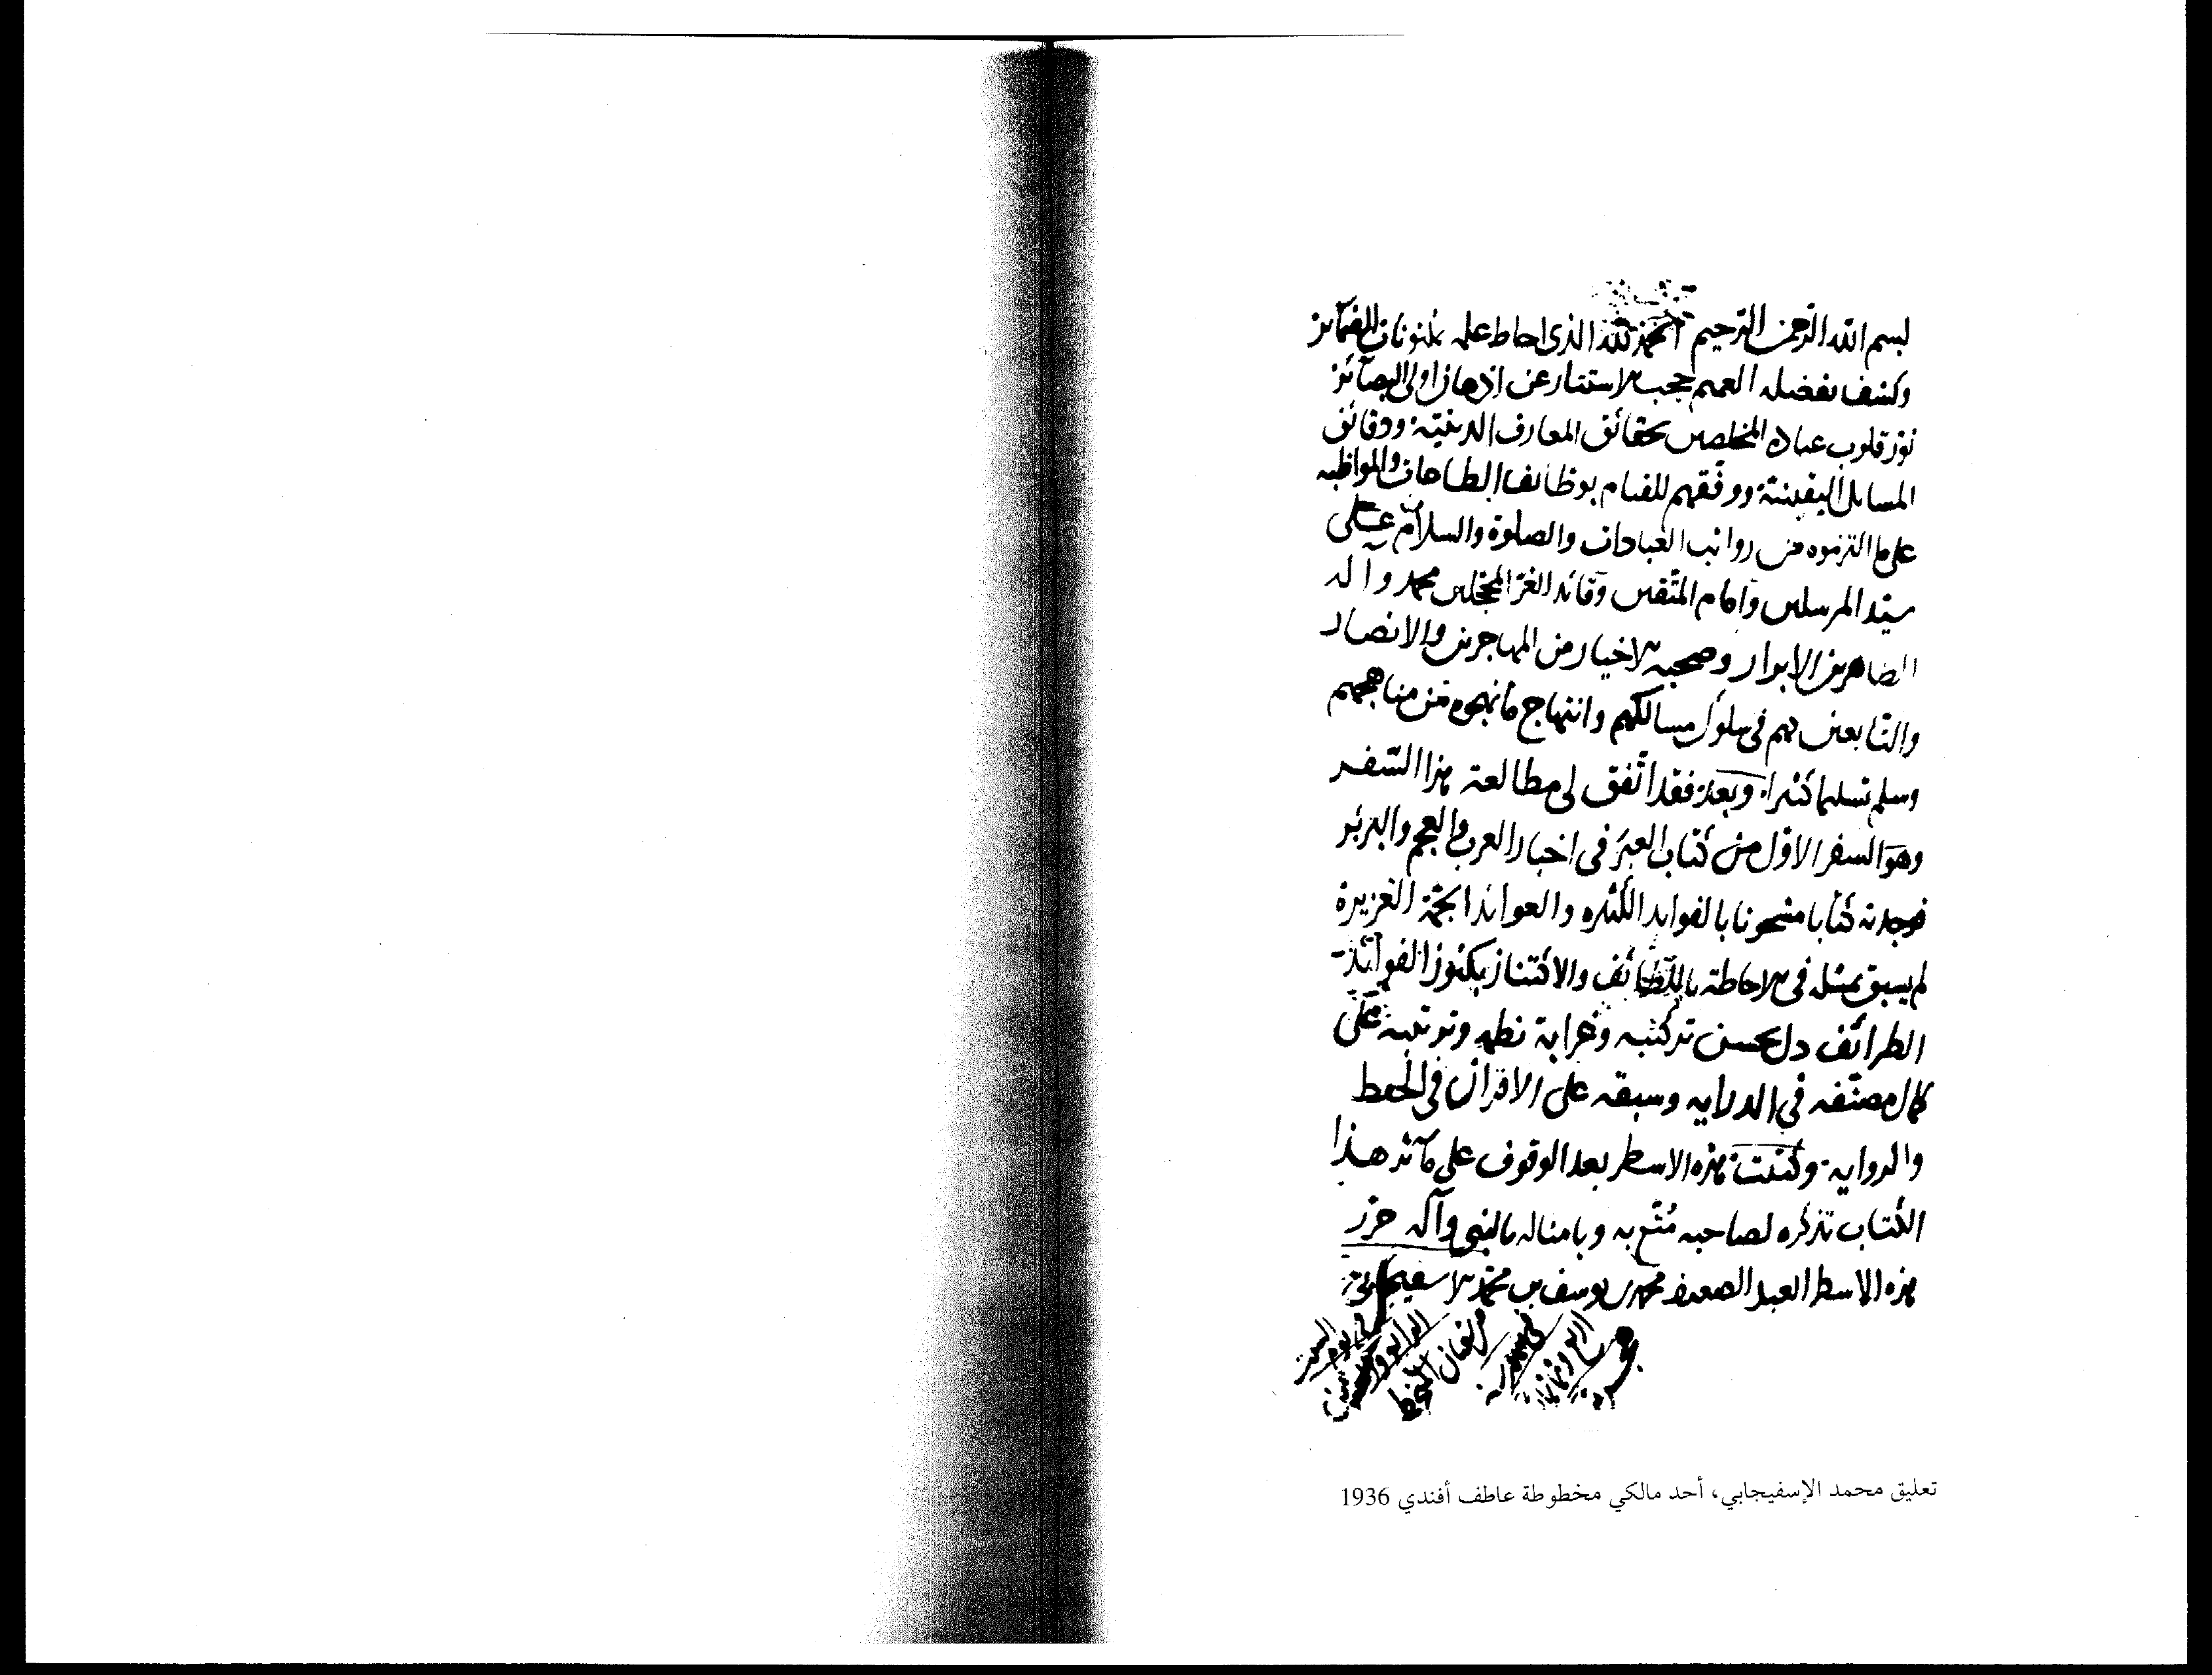 بسم الله الرحمن الرحيم الحمد لله الذى احاط علمه بمكنونات الضمآئر
وكشف بفضله العميم حجب الاستتار عن اذهان اولى البصآئر
نور قلوب عباده المخلصين بحقائق المعارف الدينية ودقائق
المسايل اليقينية ووفقهم للقيام بوظائف الطاعات والمواظبه
على ما التزموه من رواتب العبادات والصلوة والسلام على
سيد المرسلين وامام المتقين وقائد الغر المحجلين محمد وآله
الطاهرين الابرار وصحبه الاخيار من المهاجرين والانصار
والتابعين لهم فى سلوك مسالكهم وانتهاج ما نهجوه من مناهجهم
وسلم تسليما كثيرا وبعد فقد اتفق لى مطالعة هذا السفر
وهو السفر الاول من كتاب العبر فى اخبار العرب والعجم والبربر
فوجدته كتابا مشحونا بالفوايد الكثيره والعوائد الجمة الغزيرة
لم يسبق بمثله فى الاحاطة باللطائف والاكتناز بكنوز الفوائد
الطرائف دل بحسن تركيبه وغرابة نظمه وترتيبه على
كمال مصنفه فى الدرايه وسبقه على الاقران فى الحفظ
والروايه وكتبت هذه الاسطر بعد الوقوف على مآثر هذا
الكتاب تذكره لصاحبه مُتّع به وبامثاله بالنبى وآله حرر
هذه الاسطر العبد الضعيف محمد بن يوسف بن محمد الاسفيجابى
تعليق محمد الإسفيجابي، أحد مالكي مخطوطة عاطف أفندي 1936